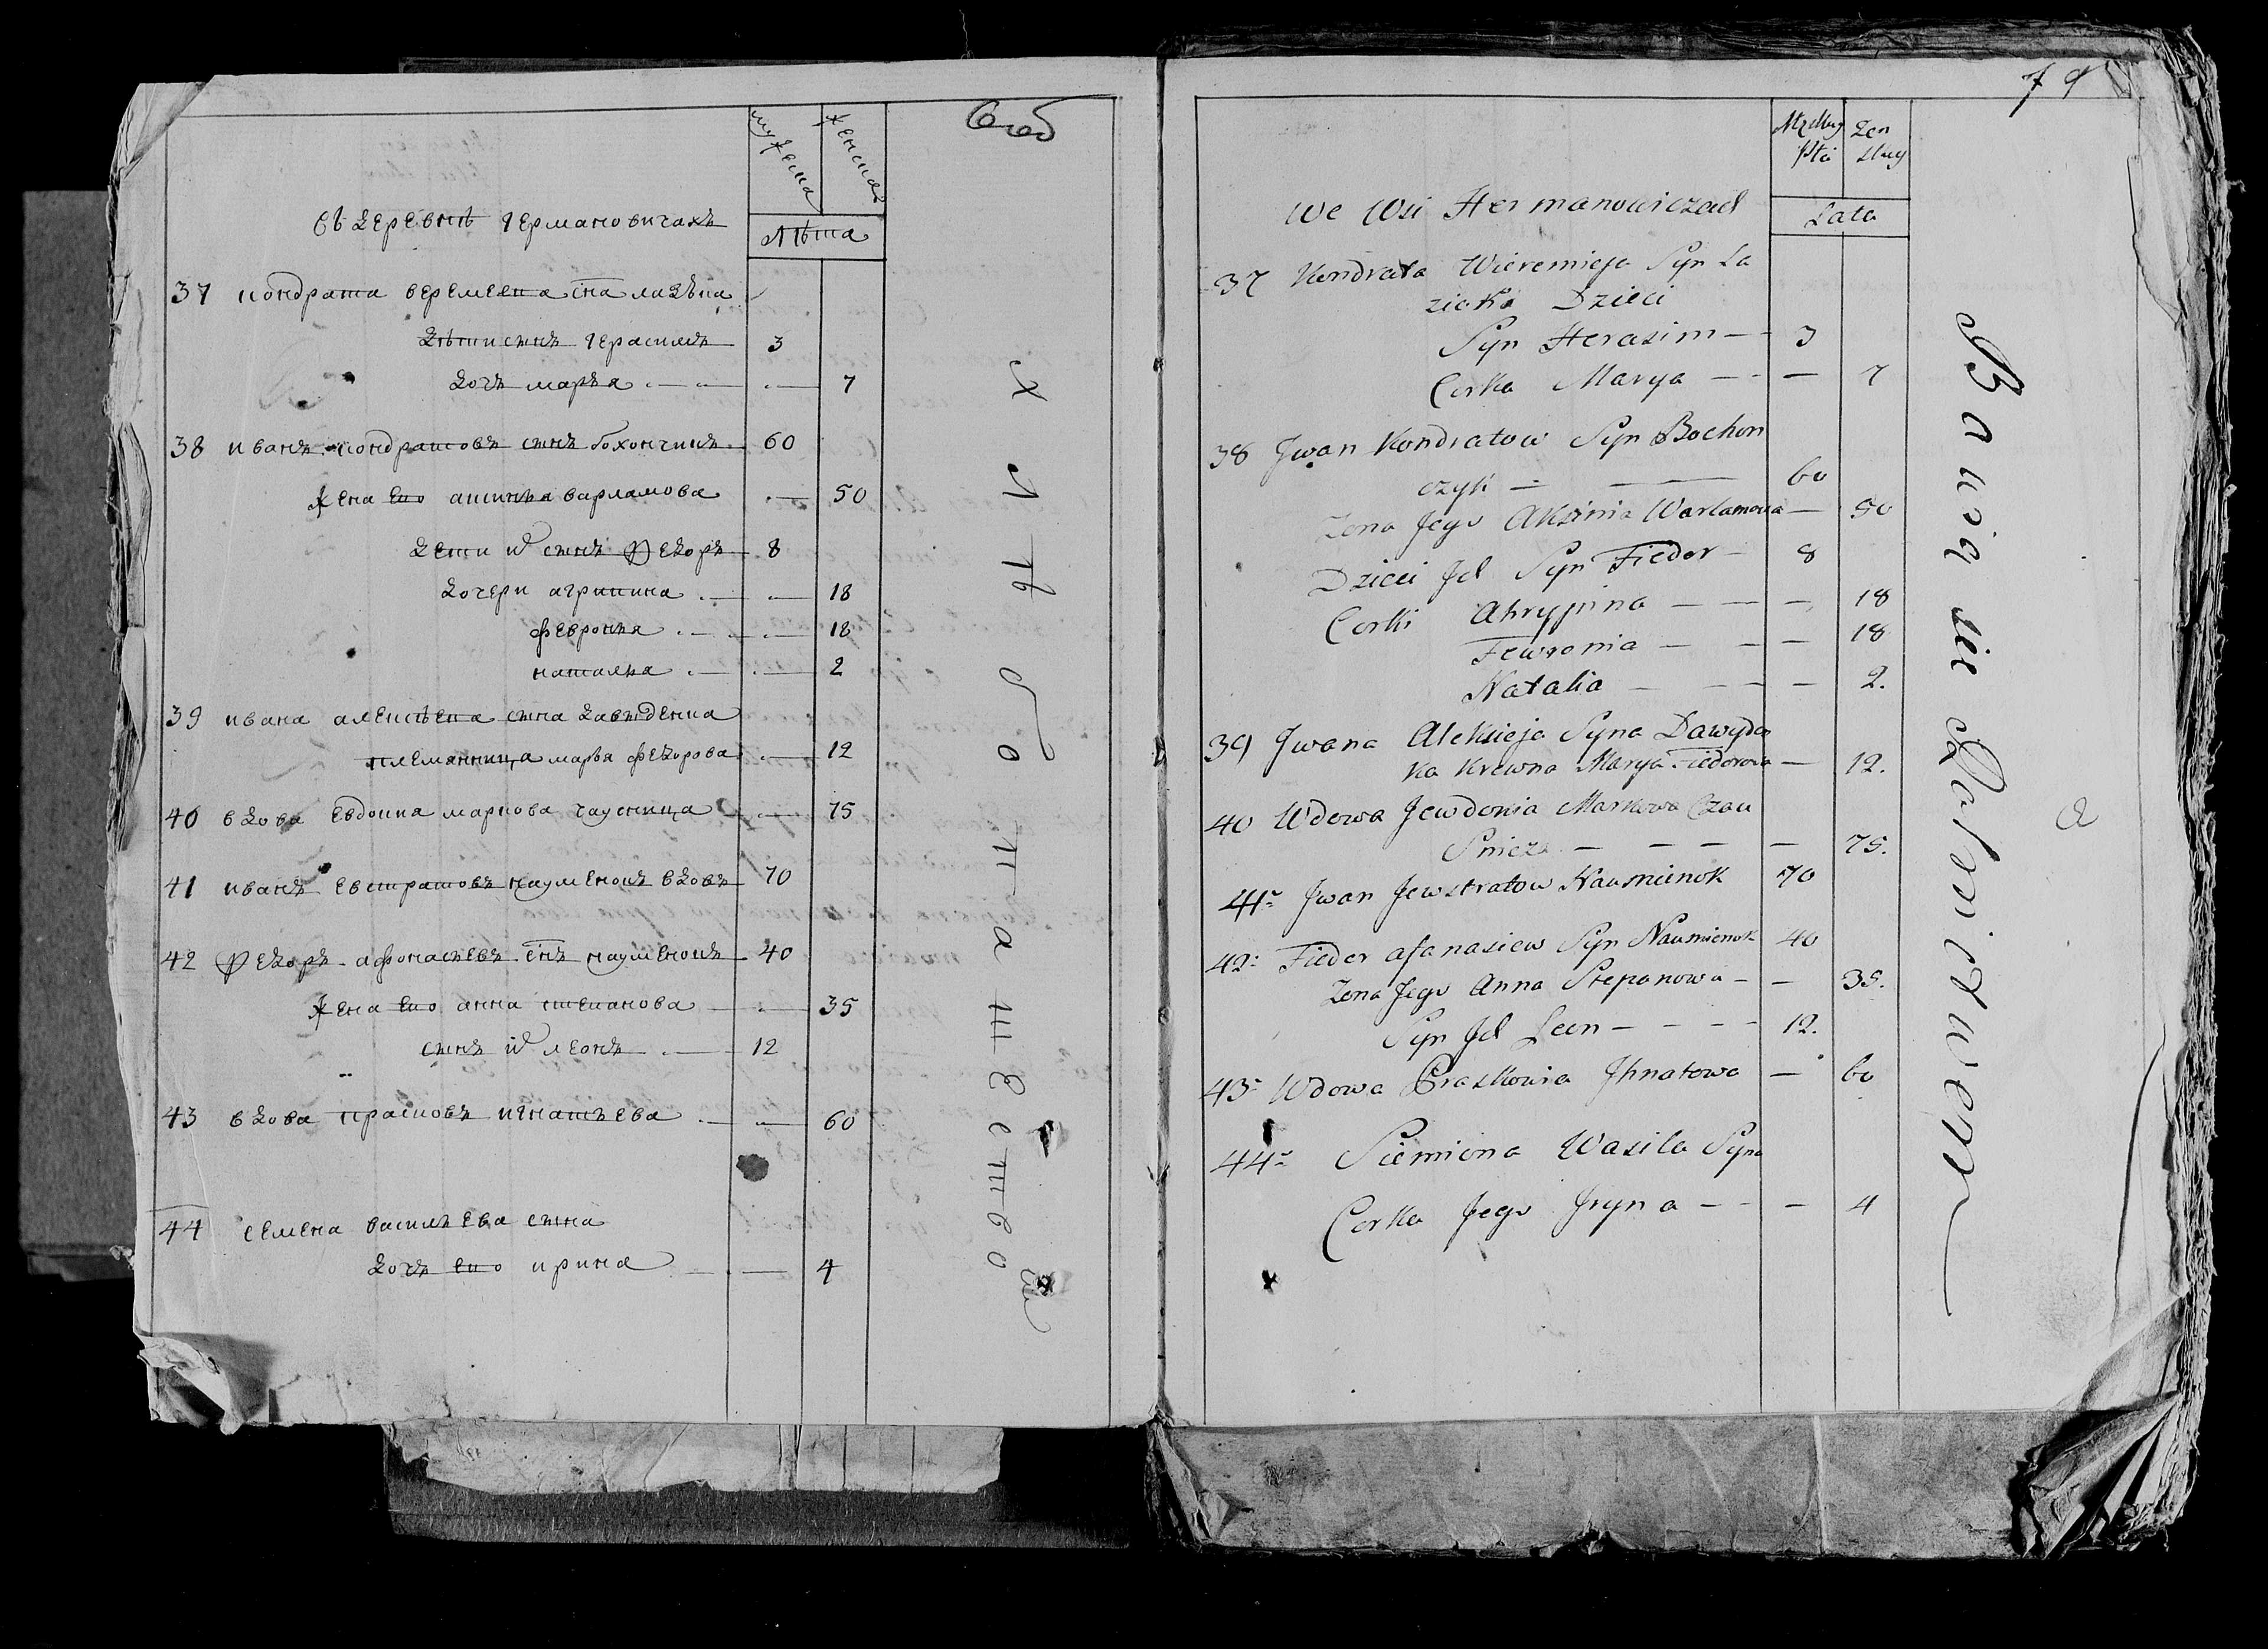 мужеска
женска
лѣта
въ деревнѣ германовичахъ
37 кондрата веремеека сна лазѣка
дѣти синъ герасимъ 3
дочь марья — — 7
38 иванъ кондратовъ синъ бохончикъ 60
жена ево аксинья варламова — 50
дети их синъ Федоръ 8
дочери агрипина — — 18
февронья — — 18
наталья — — 2
39 ивана алексѣева сина давыденка
племянница марья федорова — 12
40 вдова евдокиа маркова чаусница — 75
41 иванъ евстратовъ наумѣнокъ вдовъ 70
42 Федоръ афонасьевъ снъ наумѣнокъ 40
жена ево анна степанова — 35
синъ их леонъ — 12
43 вдова прасковъ игнатьева — — 60
44 семена васильева сина
дочь ево ирина — — 4
хлѣбопашествои
79
Męzkiey
Płci
Zen
skiey
Lata
We Wsi Hermanowiczach
37 Kondrata Wieremieja Syn La
zieka Dzieci
Syn Herasim — 3
Corka Marya — — 7
38 Jwan Kondratow Syn Bochon
czyk — — 60
Zona Jego Aksinia Warlamowa — 50
Dzieci Jch Syn Fiedor — 8
Corki Ahrypina — — — 18
Fewronia — — — 18
Natalia — — — 2.
39 Jwana Aleksieja Syna Dawyden
ka Krewna Marya Fiedorowa — 12.
40 Wdowa Jewdokia Markowa Czau
Snicza — — — — 75.
41 Jwan Jewstratow Naumienok 70
42 Fiedor afanasiew Syn Naumienok 40
Zona Jego Anna Stepanowa — — 35.
Syn Jch Leon — — — 12.
43 Wdowa Praskowia Jhnatowa — 60
44 Siemiona Wasila Syna
Corka Jego Jryna — — — 4
Bawią się Rolnictwem